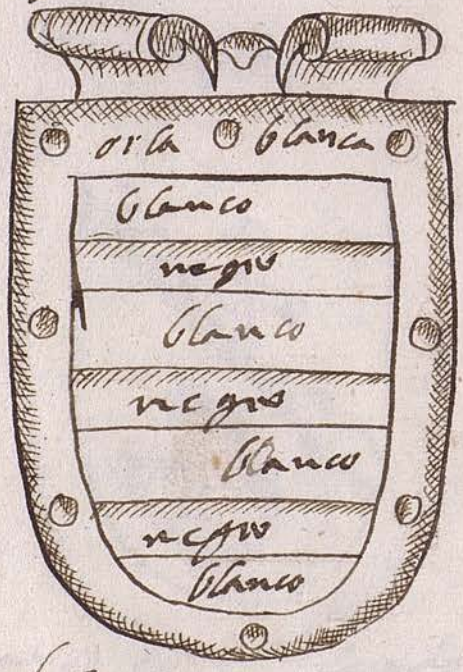 orla blanca
blanco
negro
blanco
negro
blanco
negro
blanco